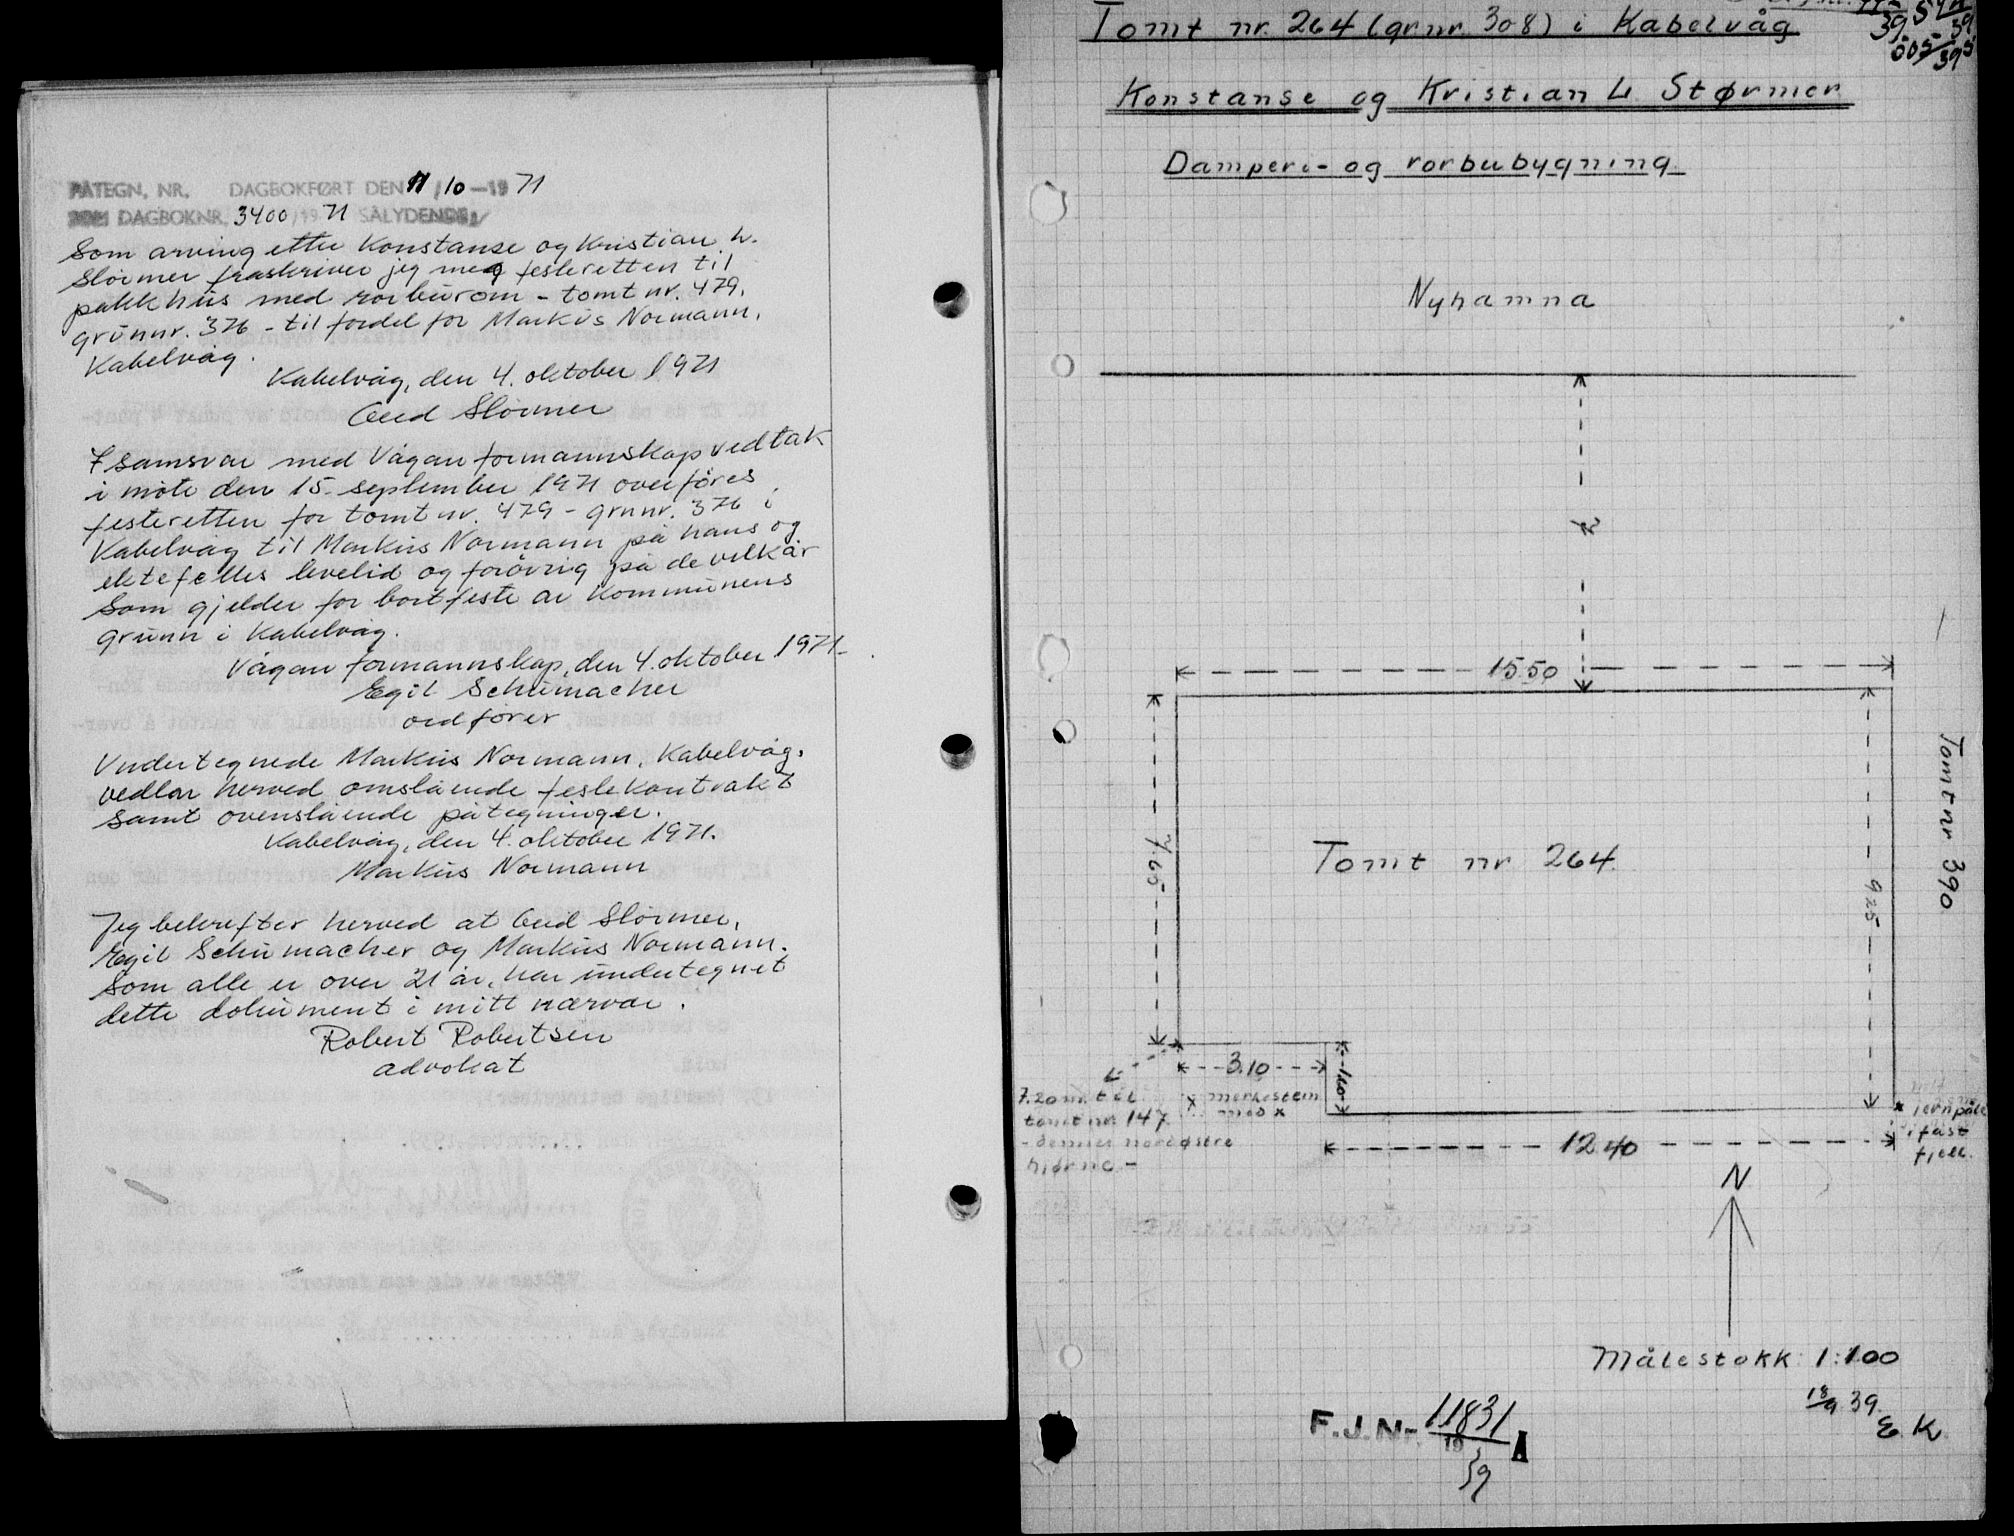 PÅTEGN. NR. DAGBOKFØRT DEN 11/10-1971
SOM DAGBOKNR. 3400/1971 SÅLYDENDE:
Som arving etter Konstanse og Kristian L.
Størmer fraskriver jeg meg festeretten til
pakkhus med rorburom - tomt nr. 479,
grunnr. 376 - til fordel for Markus Normann,
Kabelvåg.
Kabelvåg, den 4. oktober 1971
Størmer
I samsvar med Vågan formannskap vedtak
i møte den 15. september 1971 overføres
festeretten for tomt nr. 479 - grnnr. 376 i
Kabelvåg til Markus Normann på hans og
ektefelles levetid og forøvrig på de vilkår
som gjelder for bortfeste av kommunens
grunn i Kabelvåg.
Vågan formannskap, den 4. oktober 1971.
Egil Schumacher
ordfører
Undertegnede Markus Normann, Kabelvåg,
vedtar herved omstående festekontrakt
samt ovenstående påtegninger.
Kabelvåg, den 4. oktober 1971.
Markus Normann
Jeg bekrefter herved at Størmer,
Egil Schumacher og Markus Normann,
som alle er over 21 år, har undertegnet
dette dokument i mitt nærvær.
Robert Robertsen
advokat
Tomt nr. 264 (grnr. 308) i Kabelvåg
Konstanse og Kristian L. Størmer
Damperi- og rorbubygning
Nyhamna
15.50
7.65
9.25
Tomt nr 390
Tomt nr 264.
3.10
1.60
7.20 m. til
tomt nr. 147
- dennes nordøstre
hjørne -
x merkestein
med x
x jernpåle
i fast
fjell.
12.40
N
Målestokk 1:100
18/9 39.
E. K.
F.J.Nr. 11831
1939